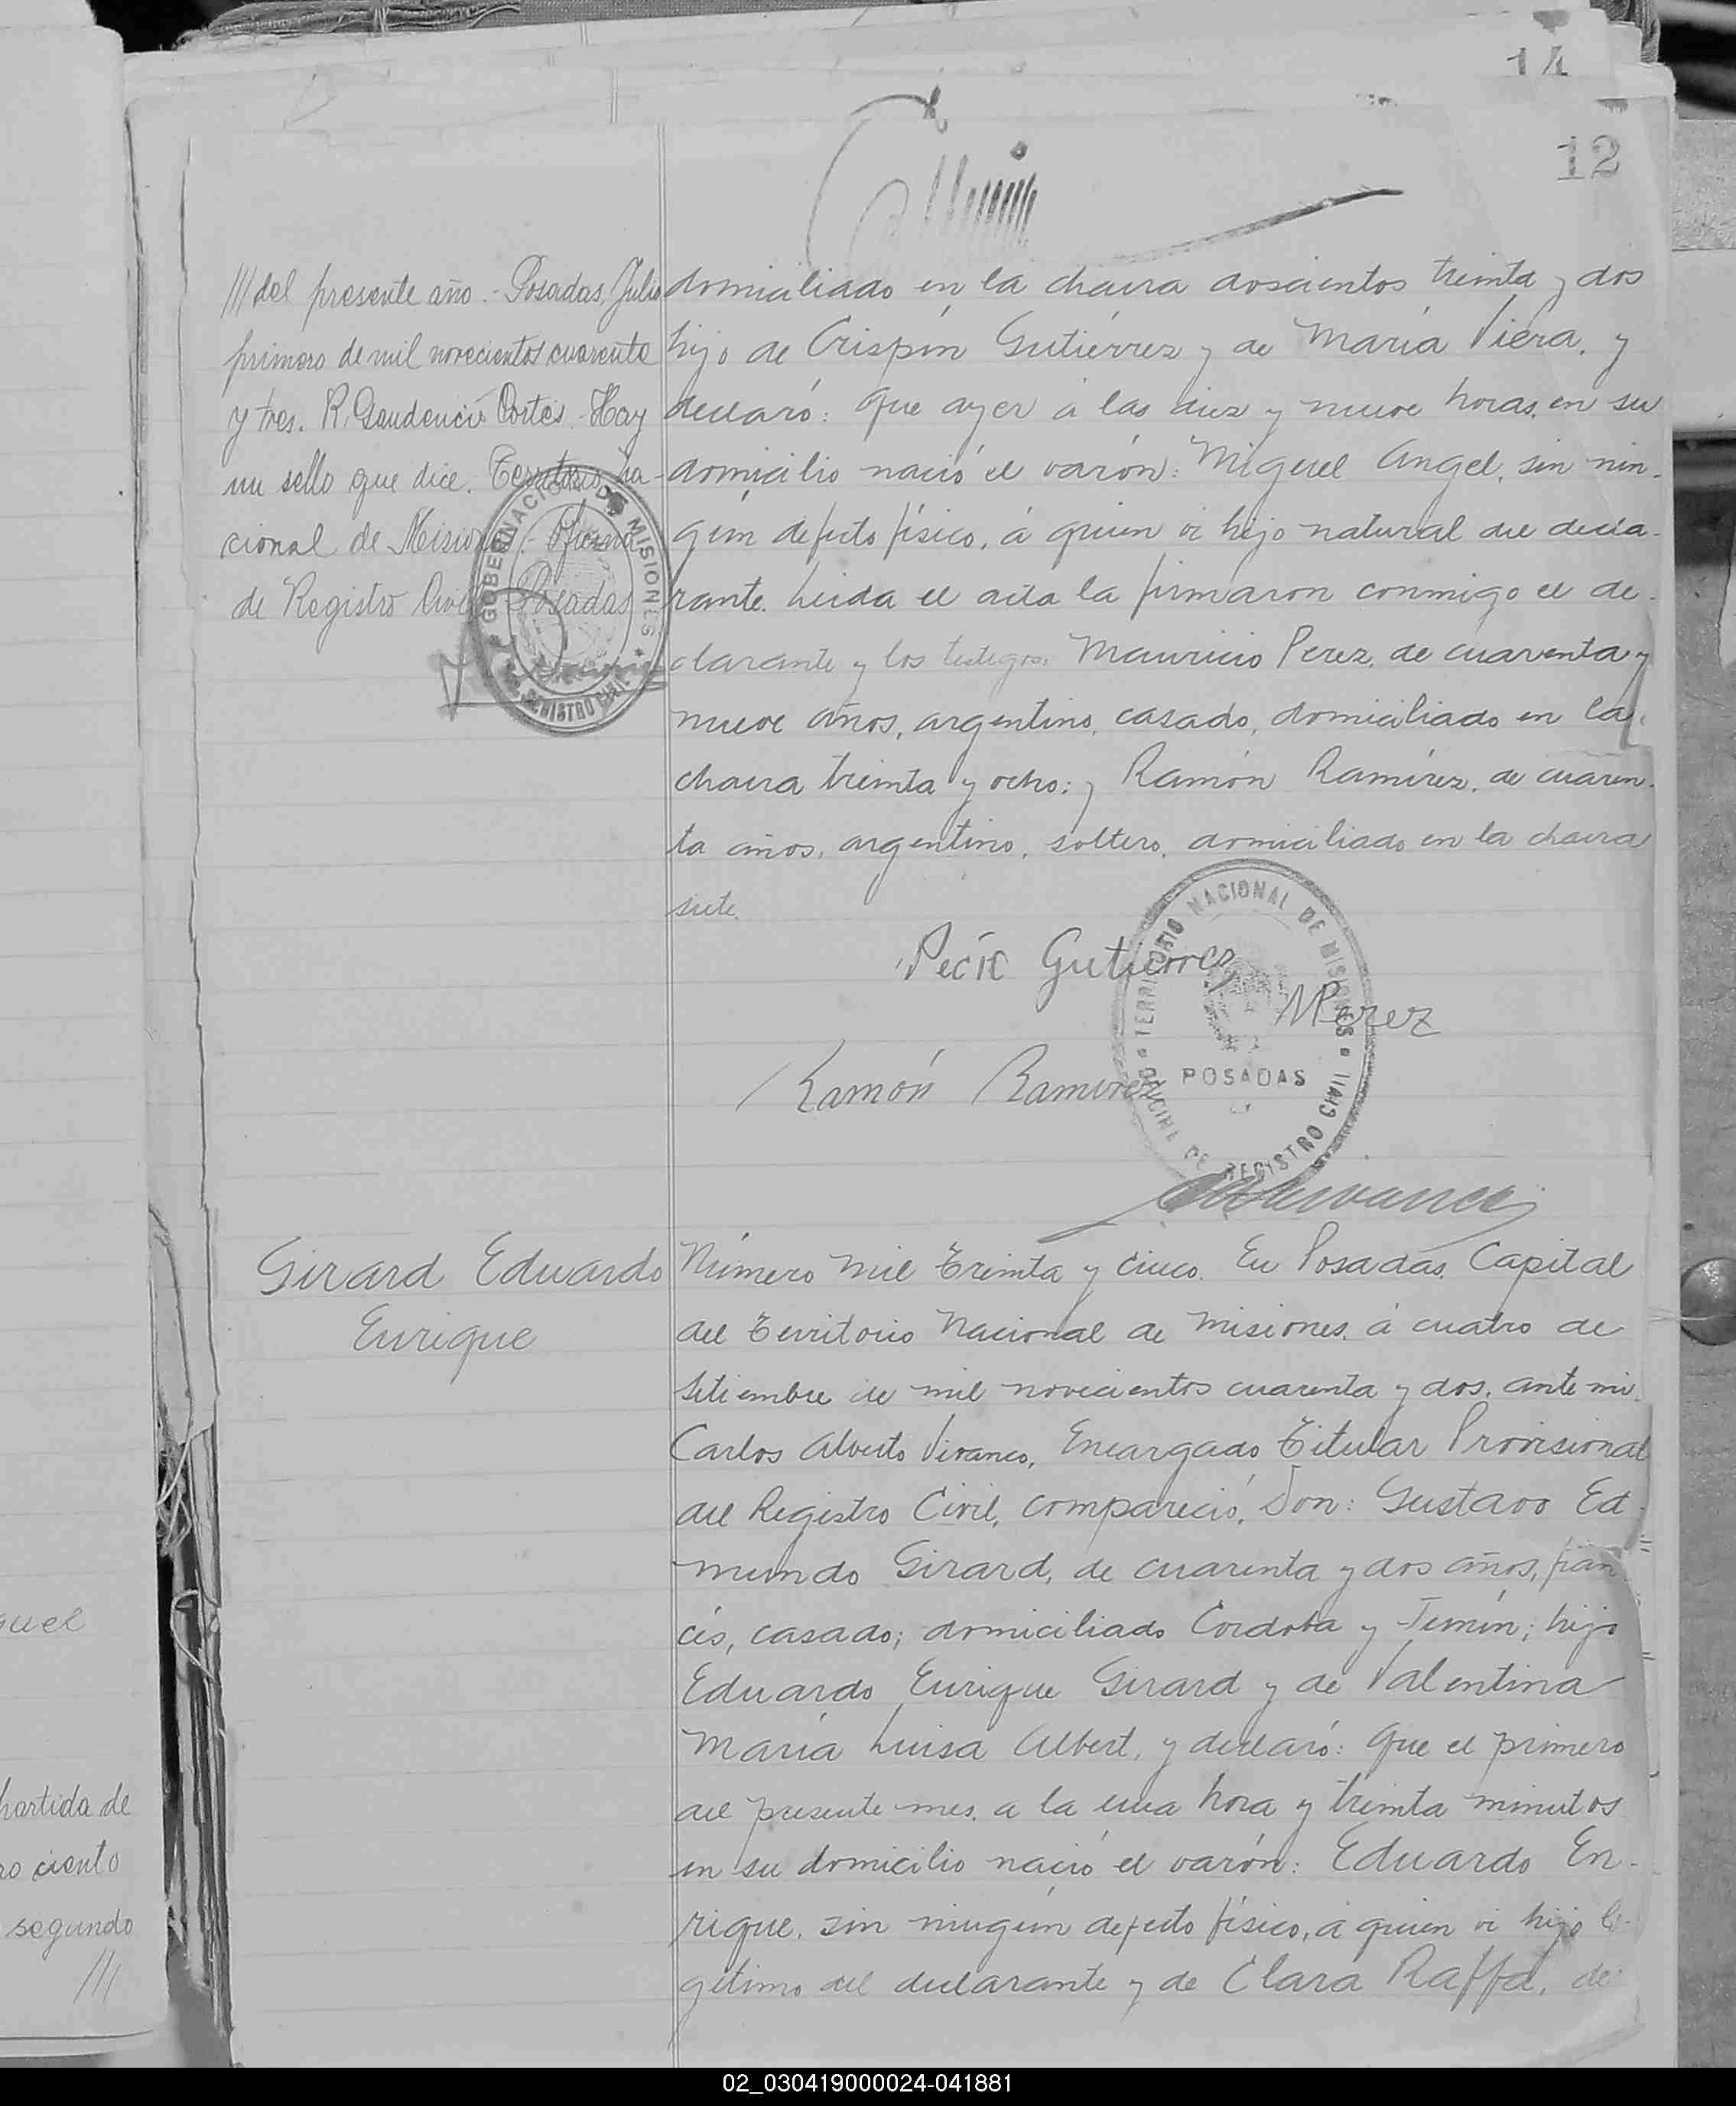 14
12
///del presente año.- Posadas, Julio
primero de mil novecientos cuarenta
y tres. R. Gaudencio Cortés. Hay
un sello que dice: Territorio na-
cional de Misiones.- Oficina
de Registro Civil Posadas
GOBERNACION DE MISIONES
REGISTRO CIVIL
domiciliado en la chacra doscientos treinta y dos
hijo de Crispín Gutiérrez y de María Viera, y
declaró: Que ayer á las diez y nueve horas, en su
domicilio nació el varón: Miguel Angel, sin nin-
gún defecto físico, á quien vi hijo natural del decla-
rante. Leida el acta la firmaron conmigo el de-
clarante y los testigos: Mauricio Perez, de cuarenta y
nueve años, argentino, casado, domiciliado en la
chacra treinta y ocho; y Ramón Ramírez, de cuaren-
ta años, argentino, soltero, domiciliado en la chacra
siete.
Gutierrez
MPerez
Ramón Ramirez
TERRITORIO NACIONAL DE MISIONES
POSADAS
OFICINA DE REGISTRO CIVIL
Girard Eduardo
Enrique
Número mil treinta y cinco. En Posadas, Capital
del Territorio Nacional de Misiones, á cuatro de
Setiembre de mil novecientos cuarenta y dos, ante mi
Carlos Alberto Vivanco, Encargado Titular Provisional
del Registro Civil, compareció, Don: Gustavo Ed-
mundo Girard, de cuarenta y dos años, fran
cés, casado; domiciliado Cordoba y Junín; hijo
Eduardo Enrique Girard y de Valentina
María Luisa Albert, y declaró: Que el primero
del presente mes, a la una hora y treinta minutos
en su domicilio nació el varón: Eduardo En-
rique, sin ningún defecto físico, á quien vi hijo le-
gítimo del declarante y de Clara Raffa, de
quel
partida de
ro ciento
segundo
///
02_030419000024-041881